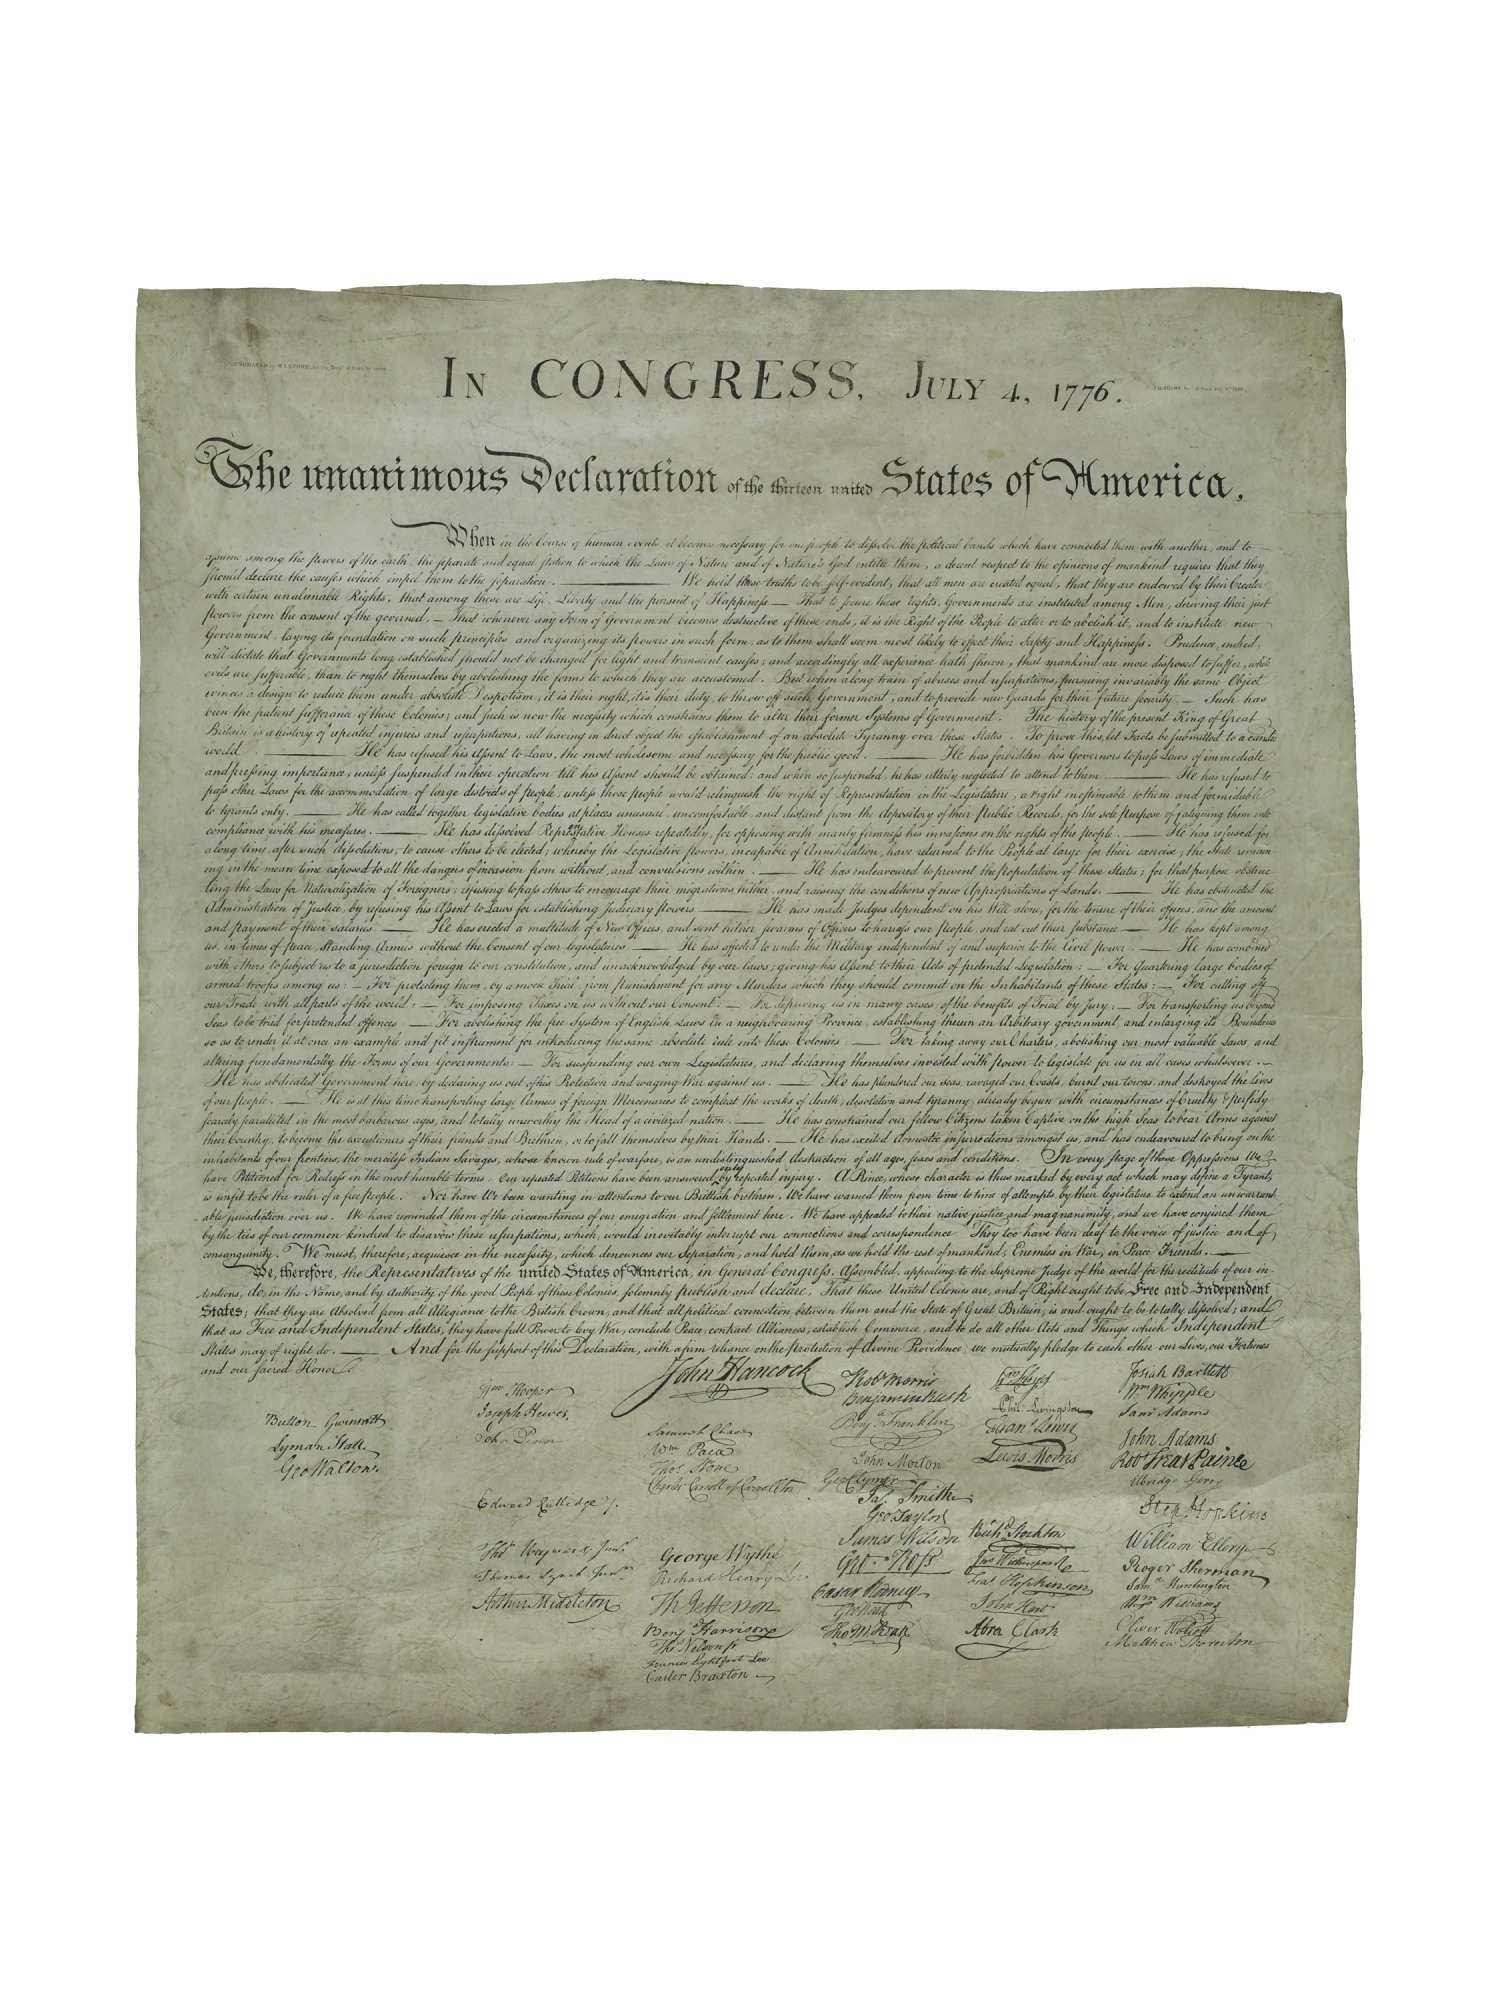 ENGRAVED by W.I.STONE, for the Dept. of State, by order
IN CONGRESS, JULY 4, 1776.
The unanimous Declaration of the thirteen united States of America,
When in the Course of human events, it becomes necessary for one people to dissolve the political bands which have connected them with another, and to
assume among the powers of the earth, the separate and equal station to which the Laws of Nature and of Nature's God entitle them, a decent respect to the opinions of mankind requires that they
should declare the causes which impel them to the separation. ——— We hold these truths to be self-evident, that all men are created equal, that they are endowed by their Creator
with certain unalienable Rights, that among these are Life, Liberty and the pursuit of Happiness — That to secure these rights, Governments are instituted among Men, deriving their just
powers from the consent of the governed, — That whenever any Form of Government becomes destructive of these ends, it is the Right of the People to alter or to abolish it, and to institute new
Government, laying its foundation on such principles and organizing its powers in such form, as to them shall seem most likely to effect their Safety and Happiness. Prudence, indeed,
will dictate that Governments long established should not be changed for light and transient causes; and accordingly all experience hath shewn, that mankind are more disposed to suffer, while
evils are sufferable, than to right themselves by abolishing the forms to which they are accustomed. But when a long train of abuses and usurpations, pursuing invariably the same Object
evinces a design to reduce them under absolute Despotism, it is their right, it is their duty, to throw off such Government, and to provide new Guards for their future security. — Such has
been the patient sufferance of these Colonies; and such is now the necessity which constrains them to alter their former Systems of Government. The history of the present King of Great
Britain is a history of repeated injuries and usurpations, all having in direct object the establishment of an absolute Tyranny over these States. To prove this, let Facts be submitted to a candid
world. ——— He has refused his Assent to Laws, the most wholesome and necessary for the public good. ——— He has forbidden his Governors to pass Laws of immediate
and pressing importance, unless suspended in their operation till his Assent should be obtained; and when so suspended, he has utterly neglected to attend to them. ——— He has refused to
pass other Laws for the accommodation of large districts of people, unless those people would relinquish the right of Representation in the Legislature, a right inestimable to them and formidable
to tyrants only. ——— He has called together legislative bodies at places unusual, uncomfortable, and distant from the depository of their Public Records, for the sole purpose of fatiguing them into
compliance with his measures. ——— He has dissolved Representative Houses repeatedly, for opposing with manly firmness his invasions on the rights of the people. ——— He has refused for
a long time, after such dissolutions, to cause others to be elected; whereby the Legislative powers, incapable of Annihilation, have returned to the People at large for their exercise; the State remain
ing in the mean time exposed to all the dangers of invasion from without, and convulsions within. ——— He has endeavoured to prevent the population of these States; for that purpose obstruc-
ting the Laws for Naturalization of Foreigners; refusing to pass others to encourage their migrations hither, and raising the conditions of new Appropriations of Lands. ——— He has obstructed the
Administration of Justice, by refusing his Assent to Laws for establishing Judiciary powers. ——— He has made Judges dependent on his Will alone, for the tenure of their offices, and the amount
and payment of their salaries. ——— He has erected a multitude of New Offices, and sent hither swarms of Officers to harrass our people, and eat out their substance. ——— He has kept among
us, in times of peace, Standing Armies without the Consent of our legislatures. ——— He has affected to render the Military independent of and superior to the Civil power. ——— He has combined
with others to subject us to a jurisdiction foreign to our constitution, and unacknowledged by our laws; giving his Assent to their Acts of pretended Legislation: — For Quartering large bodies of
armed troops among us: — For protecting them, by a mock Trial, from punishment for any Murders which they should commit on the Inhabitants of these States: — For cutting off
our Trade with all parts of the world: — For imposing Taxes on us without our Consent: — For depriving us in many cases, of the benefits of Trial by Jury; — For transporting us beyond
Seas to be tried for pretended offences — For abolishing the free System of English Laws in a neighbouring Province, establishing therein an Arbitrary government, and enlarging its Boundaries
so as to render it at once an example and fit instrument for introducing the same absolute rule into these Colonies: — For taking away our Charters, abolishing our most valuable Laws, and
altering fundamentally the Forms of our Governments: — For suspending our own Legislatures, and declaring themselves invested with power to legislate for us in all cases whatsoever. —
He has abdicated Government here, by declaring us out of his Protection and waging War against us. ——— He has plundered our seas, ravaged our Coasts, burnt our towns, and destroyed the lives
of our people. ——— He is at this time transporting large Armies of foreign Mercenaries to compleat the works of death, desolation and tyranny, already begun with circumstances of Cruelty & perfidy
scarcely paralleled in the most barbarous ages, and totally unworthy the Head of a civilized nation. ——— He has constrained our fellow Citizens taken Captive on the high Seas to bear Arms against
their Country, to become the executioners of their friends and Brethren, or to fall themselves by their Hands. ——— He has excited domestic insurrections amongst us, and has endeavoured to bring on the
inhabitants of our frontiers, the merciless Indian Savages, whose known rule of warfare, is an undistinguished destruction of all ages, sexes and conditions. In every stage of these Oppressions We
have Petitioned for Redress in the most humble terms: Our repeated Petitions have been answered only by repeated injury. A Prince, whose character is thus marked by every act which may define a Tyrant,
is unfit to be the ruler of a free people. Nor have We been wanting in attentions to our Brittish brethren. We have warned them from time to time of attempts by their legislature to extend an unwarrant
able jurisdiction over us. We have reminded them of the circumstances of our emigration and settlement here. We have appealed to their native justice and magnanimity, and we have conjured them
by the ties of our common kindred to disavow these usurpations, which, would inevitably interrupt our connections and correspondence. They too have been deaf to the voice of justice and of
consanguinity. We must, therefore, acquiesce in the necessity, which denounces our Separation, and hold them, as we hold the rest of mankind, Enemies in War, in Peace Friends. ———
We, therefore, the Representatives of the united States of America, in General Congress, Assembled, appealing to the Supreme Judge of the world for the rectitude of our in-
tentions, do, in the Name, and by Authority of the good People of these Colonies, solemnly publish and declare, That these United Colonies are, and of Right ought to be Free and Independent
States; that they are Absolved from all Allegiance to the British Crown, and that all political connection between them and the State of Great Britain, is and ought to be totally dissolved; and
that as Free and Independent States, they have full Power to levy War, conclude Peace, contract Alliances, establish Commerce, and to do all other Acts and Things which Independent
States may of right do. ——— And for the support of this Declaration, with a firm reliance on the protection of divine Providence, we mutually pledge to each other our Lives, our Fortunes
and our sacred Honor.
Button Gwinnett
Lyman Hall.
Geo Walton.
Wm Hooper
Joseph Hewes,
John Penn
Edward Rutledge /.
Thos Heyward Junr.
Thomas Lynch Junr.
Arthur Middleton
John Hancock
Samuel Chase
Wm. Paca
Thos. Stone
Charles Carroll of Carrollton
George Wythe
Richard Henry Lee
Th Jefferson
Benj Harrison
Thos Nelson jr.
Francis Lightfoot Lee
Carter Braxton
Robt Morris
Benjamin Rush
Benj. Franklin
John Morton
Geo Clymer
Jas. Smith
Geo. Taylor
James Wilson
Geo. Ross
Caesar Rodney
Geo Read
Tho M:Kean
Wm Floyd
Phil. Livingston
Frans. Lewis
Lewis Morris
Richd. Stockton
Jno Witherspoon
Fras. Hopkinson
John Hart
Abra Clark
Josiah Bartlett
Wm. Whipple
Saml Adams
John Adams
Robt Treat Paine
Elbridge Gerry
Step. Hopkins
William Ellery
Roger Sherman
Saml Huntington
Wm. Williams
Oliver Wolcott
Matthew Thornton